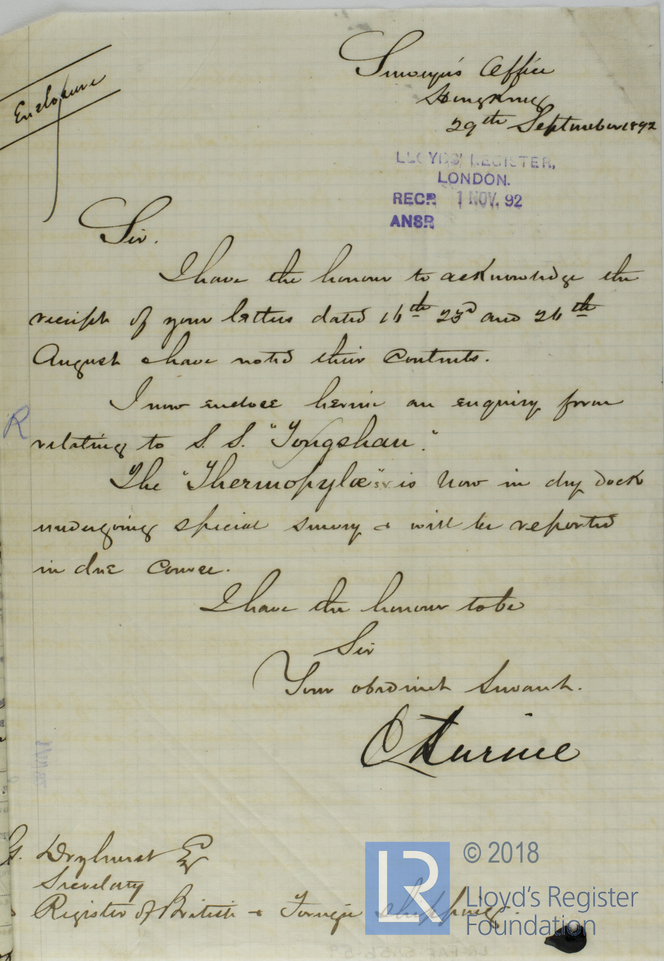 Enclosure
Surveyor's Office
Hongkong
29th September 1892
LLOYDS' REGISTER,
LONDON.
RECD 1 NOV. 92
ANSD
Sir.
I have the honour to acknowledge the
receipt of your letters dated 16th 23d and 26th
August & have noted their contents.
I now enclose herein an enquiry from
R
relating to S.S. "Tongshan."
The "Thermopylæ" is now in dry dock
undergoing special survey & will be reported
in due course.
I have the honour to be
Sir
Your obedient Servant.
Dryhurst Esq
Secretary
Register of British & Foreign Shipping.
LR
© 2018
Lloyd's Register
Foundation